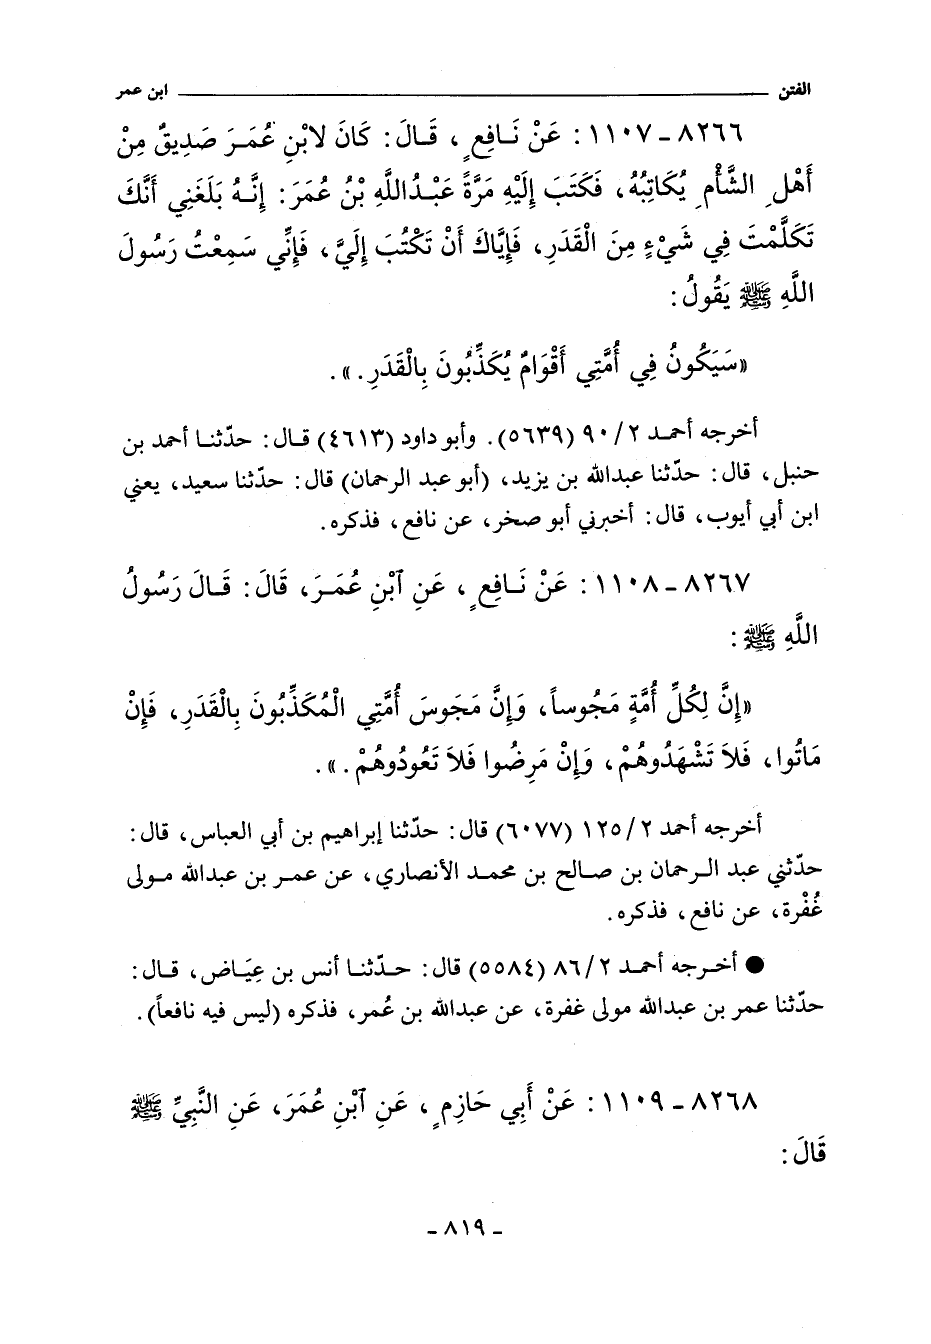 الفتن ــــــــــــــــــــ ابن عمر
٨٢٦٦ ـ ١١٠٧ : عَنْ نَافِعٍ ، قَالَ : كَانَ لابْنِ عُمَرَ صَدِيقٌ مِنْ
أَهْلِ الشَّأْمِ يُكَاتِبُهُ ، فَكَتَبَ إِلَيْهِ مَرَّةً عَبْدُاللَّهِ بْنُ عُمَرَ : إِنَّهُ بَلَغَنِي أَنَّكَ
تَكَلَّمْتَ فِي شَيْءٍ مِنَ الْقَدَرِ ، فَإِيَّاكَ أَنْ تَكْتُبَ إِلَيَّ ، فَإِنِّي سَمِعْتُ رَسُولَ
اللَّهِ ﷺ يَقُولُ :
«سَيَكُونُ فِي أُمَّتِي أَقْوَامٌ يُكَذِّبُونَ بِالْقَدَرِ .» .
أخرجه أحمد ٢/ ٩٠ (٥٦٣٩) . وأبو داود (٤٦١٣) قال : حدّثنا أحمد بن
حنبل ، قال : حدّثنا عبدالله بن يزيد ، (أبو عبد الرحمان) قال : حدّثنا سعيد ، يعني
ابن أبي أيوب ، قال : أخبرني أبو صخر ، عن نافع ، فذكره .
٨٢٦٧ ـ ١١٠٨ : عَنْ نَافِعٍ ، عَنِ ٱبْنِ عُمَرَ ، قَالَ : قَالَ رَسُولُ
اللَّهِ ﷺ :
«إِنَّ لِكُلِّ أُمَّةٍ مَجُوساً ، وَإِنَّ مَجُوسَ أُمَّتِي الْمُكَذِّبُونَ بِالْقَدَرِ ، فَإِنْ
مَاتُوا ، فَلاَ تَشْهَدُوهُمْ ، وَإِنْ مَرِضُوا فَلاَ تَعُودُوهُمْ .» .
أخرجه أحمد ٢/ ١٢٥ (٦٠٧٧) قال : حدّثنا إبراهيم بن أبي العباس ، قال :
حدّثني عبد الرحمان بن صالح بن محمد الأنصاري ، عن عمر بن عبدالله مولى
غُفْرة ، عن نافع ، فذكره .
● أخرجه أحمد ٢/ ٨٦ (٥٥٨٤) قال : حدّثنا أنس بن عِيَاض ، قال :
حدّثنا عمر بن عبدالله مولى غفرة ، عن عبدالله بن عُمر ، فذكره (ليس فيه نافعاً) .
٨٢٦٨ ـ ١١٠٩ : عَنْ أَبِي حَازِمٍ ، عَنِ ٱبْنِ عُمَرَ ، عَنِ النَّبِيِّ ﷺ
قَالَ :
ـ ٨١٩ ـ